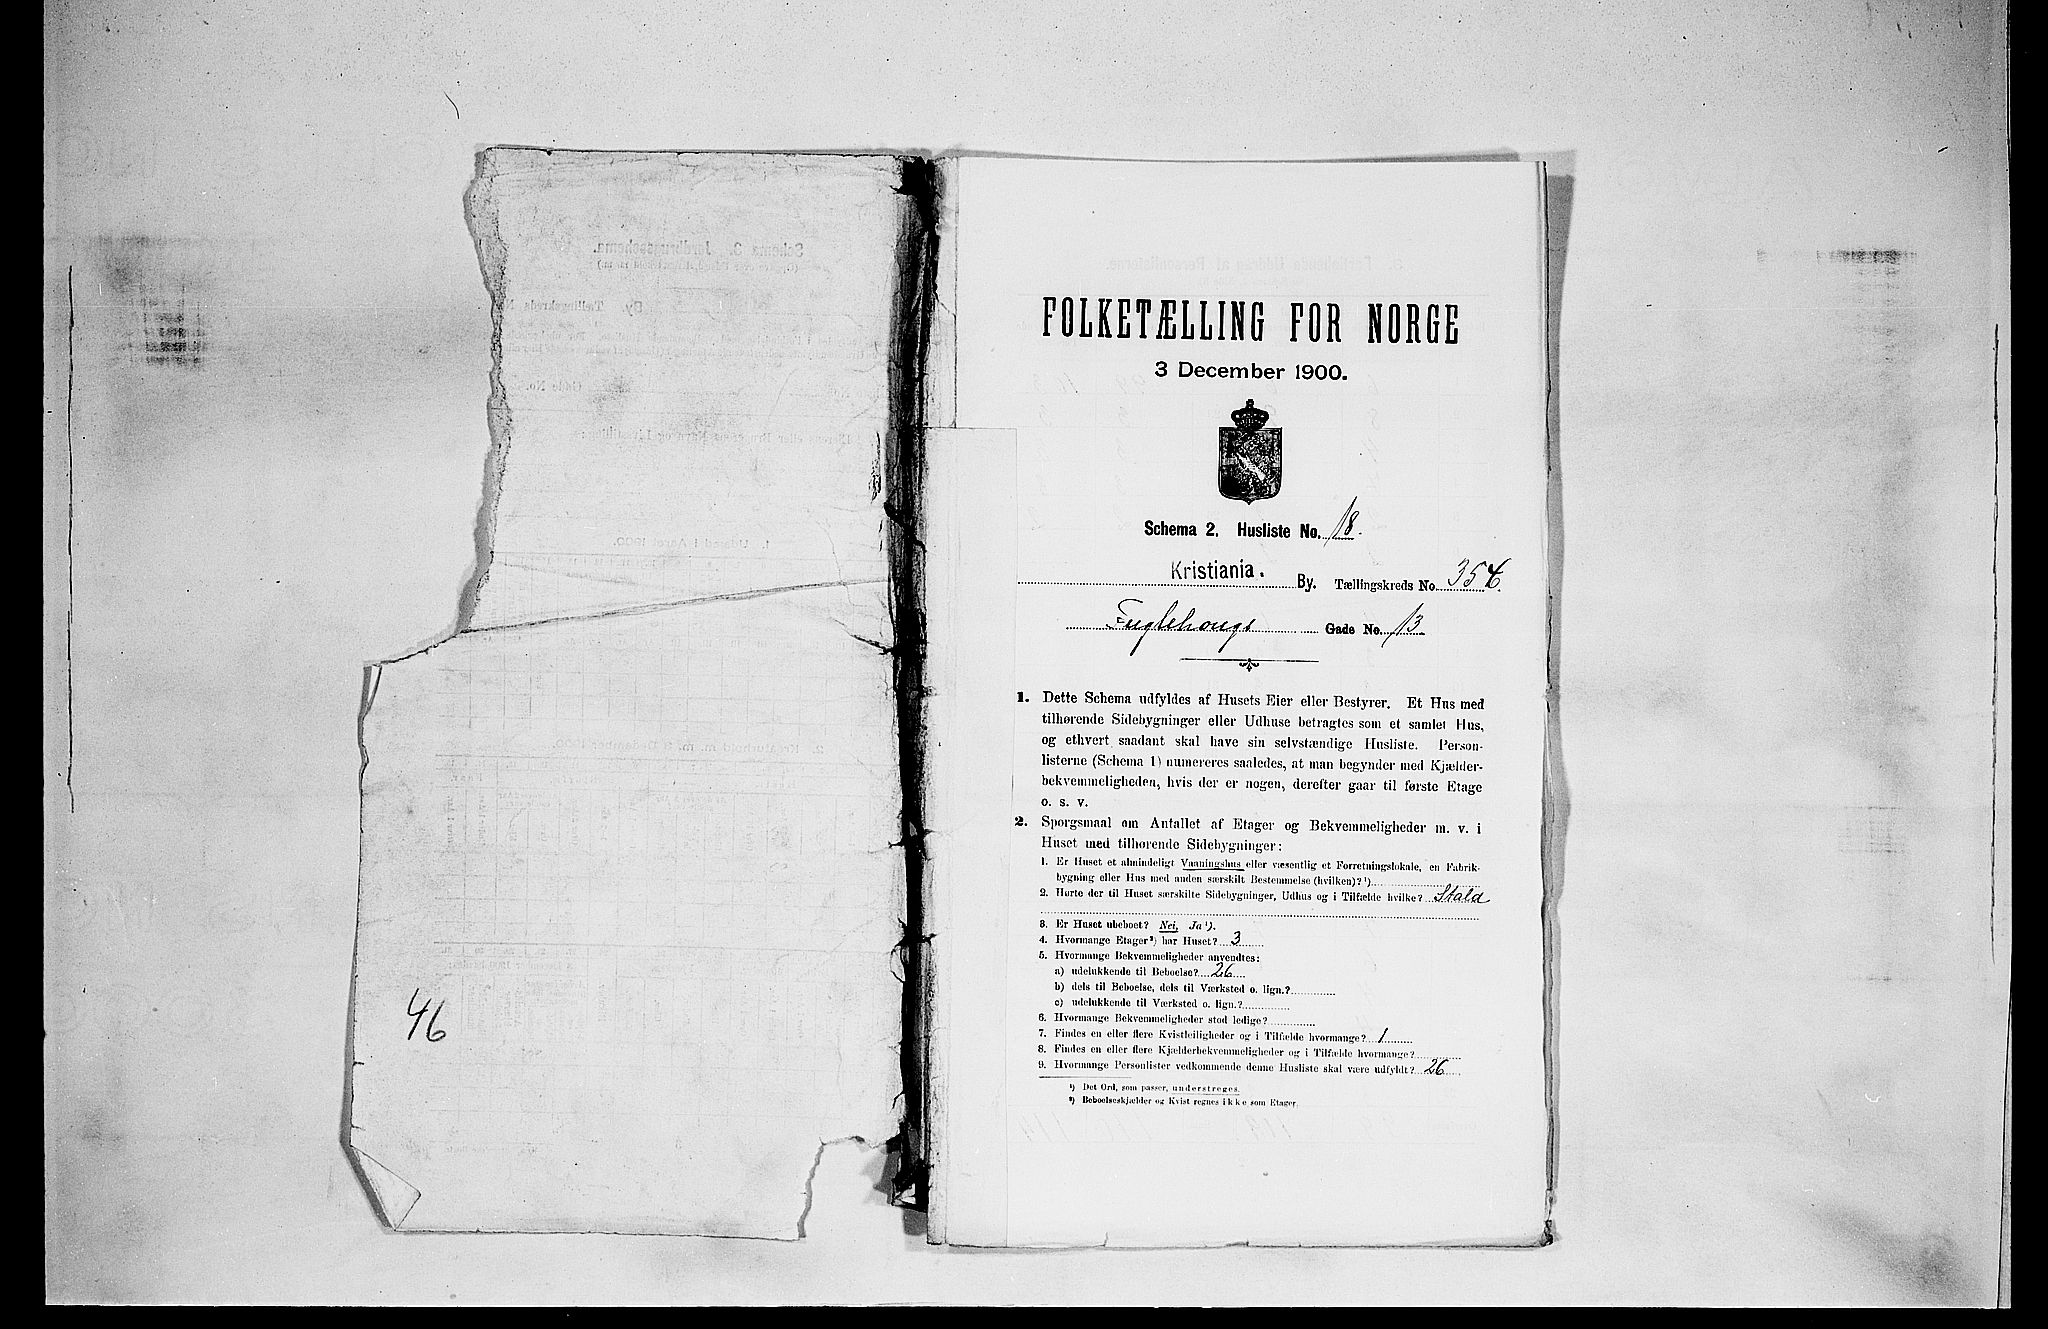 46
FOLKETÆLLING FOR NORGE
3 December 1900.
Schema 2. Husliste No. 18.
Kristiania. By. Tællingskreds No. 354
Fuglehougs Gade No. 13
1. Dette Schema udfyldes af Husets Eier eller Bestyrer. Et Hus med
tilhørende Sidebygninger eller Udhuse betragtes som et samlet Hus,
og ethvert saadant skal have sin selvstændige Husliste. Person-
listerne (Schema 1) numereres saaledes, at man begynder med Kjælder-
bekvemmeligheden, hvis der er nogen, derefter gaar til første Etage
o. s. v.
2. Spørgsmaal om Antallet af Etager og Bekvemmeligheder m. v. i
Huset med tilhørende Sidebygninger:
1. Er Huset et almindeligt Vaaningshus eller væsentlig et Forretningslokale, en Fabrik-
bygning eller Hus med anden særskilt Bestemmelse (hvilken)? ¹)
2. Hørte der til Huset særskilte Sidebygninger, Udhus og i Tilfælde hvilke? Stald
3. Er Huset ubeboet? Nei, Ja ¹).
4. Hvormange Etager ²) har Huset? 3
5. Hvormange Bekvemmeligheder anvendtes:
a) udelukkende til Beboelse? 26
b) dels til Beboelse, dels til Værksted o. lign.?
c) udelukkende til Værksted o. lign.?
6. Hvormange Bekvemmeligheder stod ledige?
7. Findes en eller flere Kvistleiligheder og i Tilfælde hvormange? 1
8. Findes en eller flere Kjælderbekvemmeligheder og i Tilfælde hvormange?
9. Hvormange Personlister vedkommende denne Husliste skal være udfyldt? 26
¹) Det Ord, som passer, understreges.
²) Beboelseskjælder og Kvist regnes ikke som Etager.